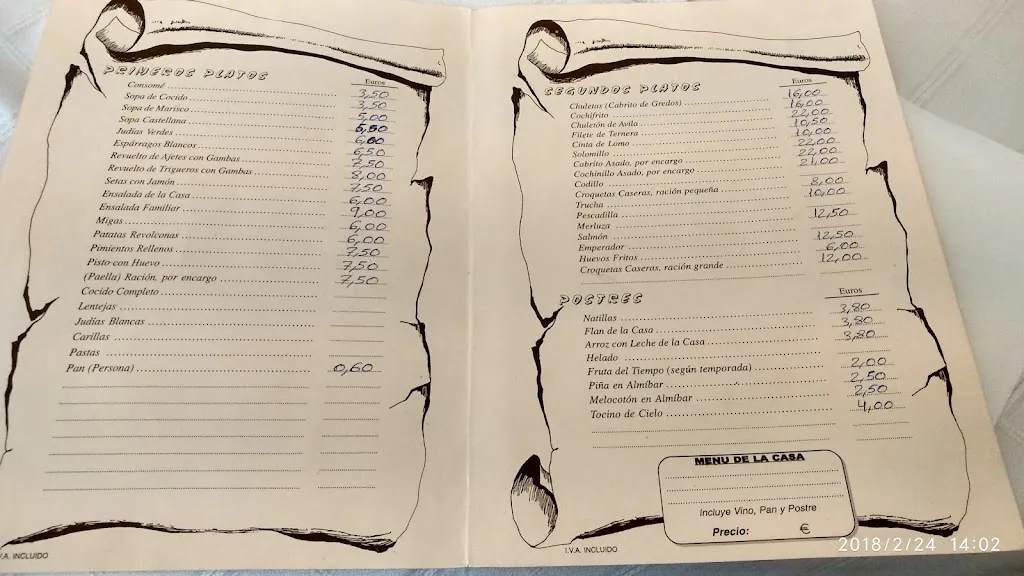 PRIMEROS PLATOS
Euros
Consomé 3,50
Sopa de Cocido 3,50
Sopa de Marisco 5,00
Sopa Castellana 5,50
Judías Verdes 6,00
Espárragos Blancos 6,50
Revuelto de Ajetes con Gambas 7,50
Revuelto de Trigueros con Gambas 8,00
Setas con Jamón 7,50
Ensalada de la Casa 6,00
Ensalada Familiar 9,00
Migas 6,00
Patatas Revolconas 6,00
Pimientos Rellenos 7,50
Pisto con Huevo 7,50
(Paella) Ración, por encargo 7,50
Cocido Completo
Lentejas
Judías Blancas
Carillas
Pastas
Pan (Persona) 0,60
.A. INCLUIDO
SEGUNDOS PLATOS
Euros
Chuletas (Cabrito de Gredos) 16,00
Cochifrito 16,00
Chuletón de Avila 22,00
Filete de Ternera 10,50
Cinta de Lomo 10,00
Solomillo 22,00
Cabrito Asado, por encargo 22,00
Cochinillo Asado, por encargo 21,00
Codillo
Croquetas Caseras, ración pequeña 8,00
Trucha 10,00
Pescadilla
Merluza 12,50
Salmón
Emperador 12,50
Huevos Fritos 6,00
Croquetas Caseras, ración grande 12,00
POSTRES
Euros
Natillas 3,80
Flan de la Casa 3,80
Arroz con Leche de la Casa 3,80
Helado
Fruta del Tiempo (según temporada) 2,00
Piña en Almíbar 2,50
Melocotón en Almíbar 2,50
Tocino de Cielo 4,00
MENU DE LA CASA
Incluye Vino, Pan y Postre
Precio: €
I.V.A. INCLUIDO
2018/2/24 14:02